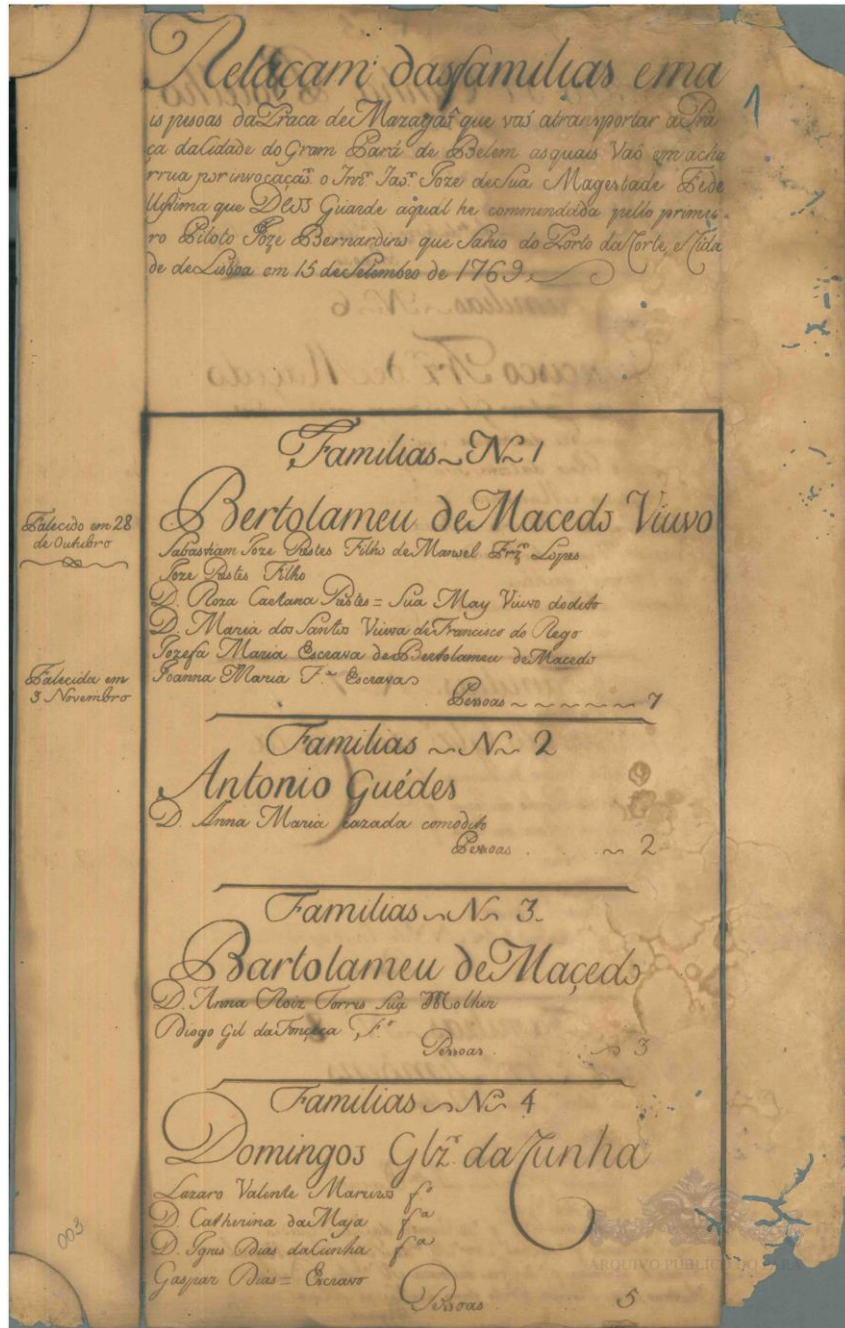 Relaçam das familias e ma
is pesoas da Praca de Mazagaõ que vaõ atransportar a Pra
ça da Cidade do Gram Pará de Belem as quais Vaõ em acha
rrua por invocaçaõ o Inf.e Saõ Joze de Sua Magestade Fide
lissima que DEOS Guarde aqual he commendada pello primei
ro Piloto Joze Bernardino que Sahio do Porto da Corte, e Cida
de de Lisboa em 15 de Setembro de 1769
1
Familias N. 1
Bertolameu de Macedo Viuvo
Falecido em 28
de Outubro
Sabastiam Joze Prestes Filho de Manoel Frz Lopes
Joze Prestes Filho
D. Roza Caetana Prestes = Sua May Viuvo do dito
D. Maria dos Santos Viuva de Francisco do Rego
Jozefa Maria Escrava de Bertolameu de Macedo
Falecida em
3 Novembro
Joanna Maria F.a Escrava
Pessoas 7
Familias N. 2
Antonio Guédes
D. Anna Maria cazada comodito
Pessoas 2
Familias N. 3
Bartolameu de Maçedo
D. Anna Roiz Torres Sua Molher
Diogo Gil da Fonçeca F.o
Pessoas 3
Familias N. 4
Domingos Glz da Cunha
Lazaro Valente Marcos f.o
D. Catherina da Maja f.a
D. Ignes Dias da Cunha f.a
Gaspar Dias = Escravo
Pessoas 5
003
ARQUIVO PUBLICO DO PARÁ